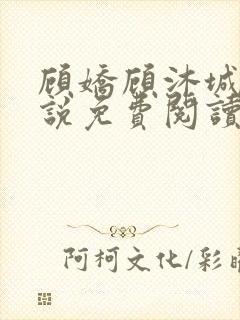 顾嬌顾沐城
說免費閱讀
阿柯文化/彩